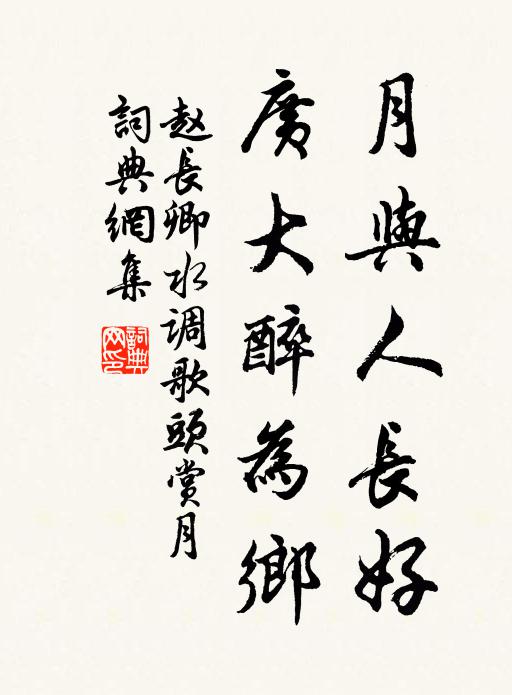 月與人長好
廣大醉為鄉
赵長卿水调歌頭賞月
詞典網集
詞典
网印